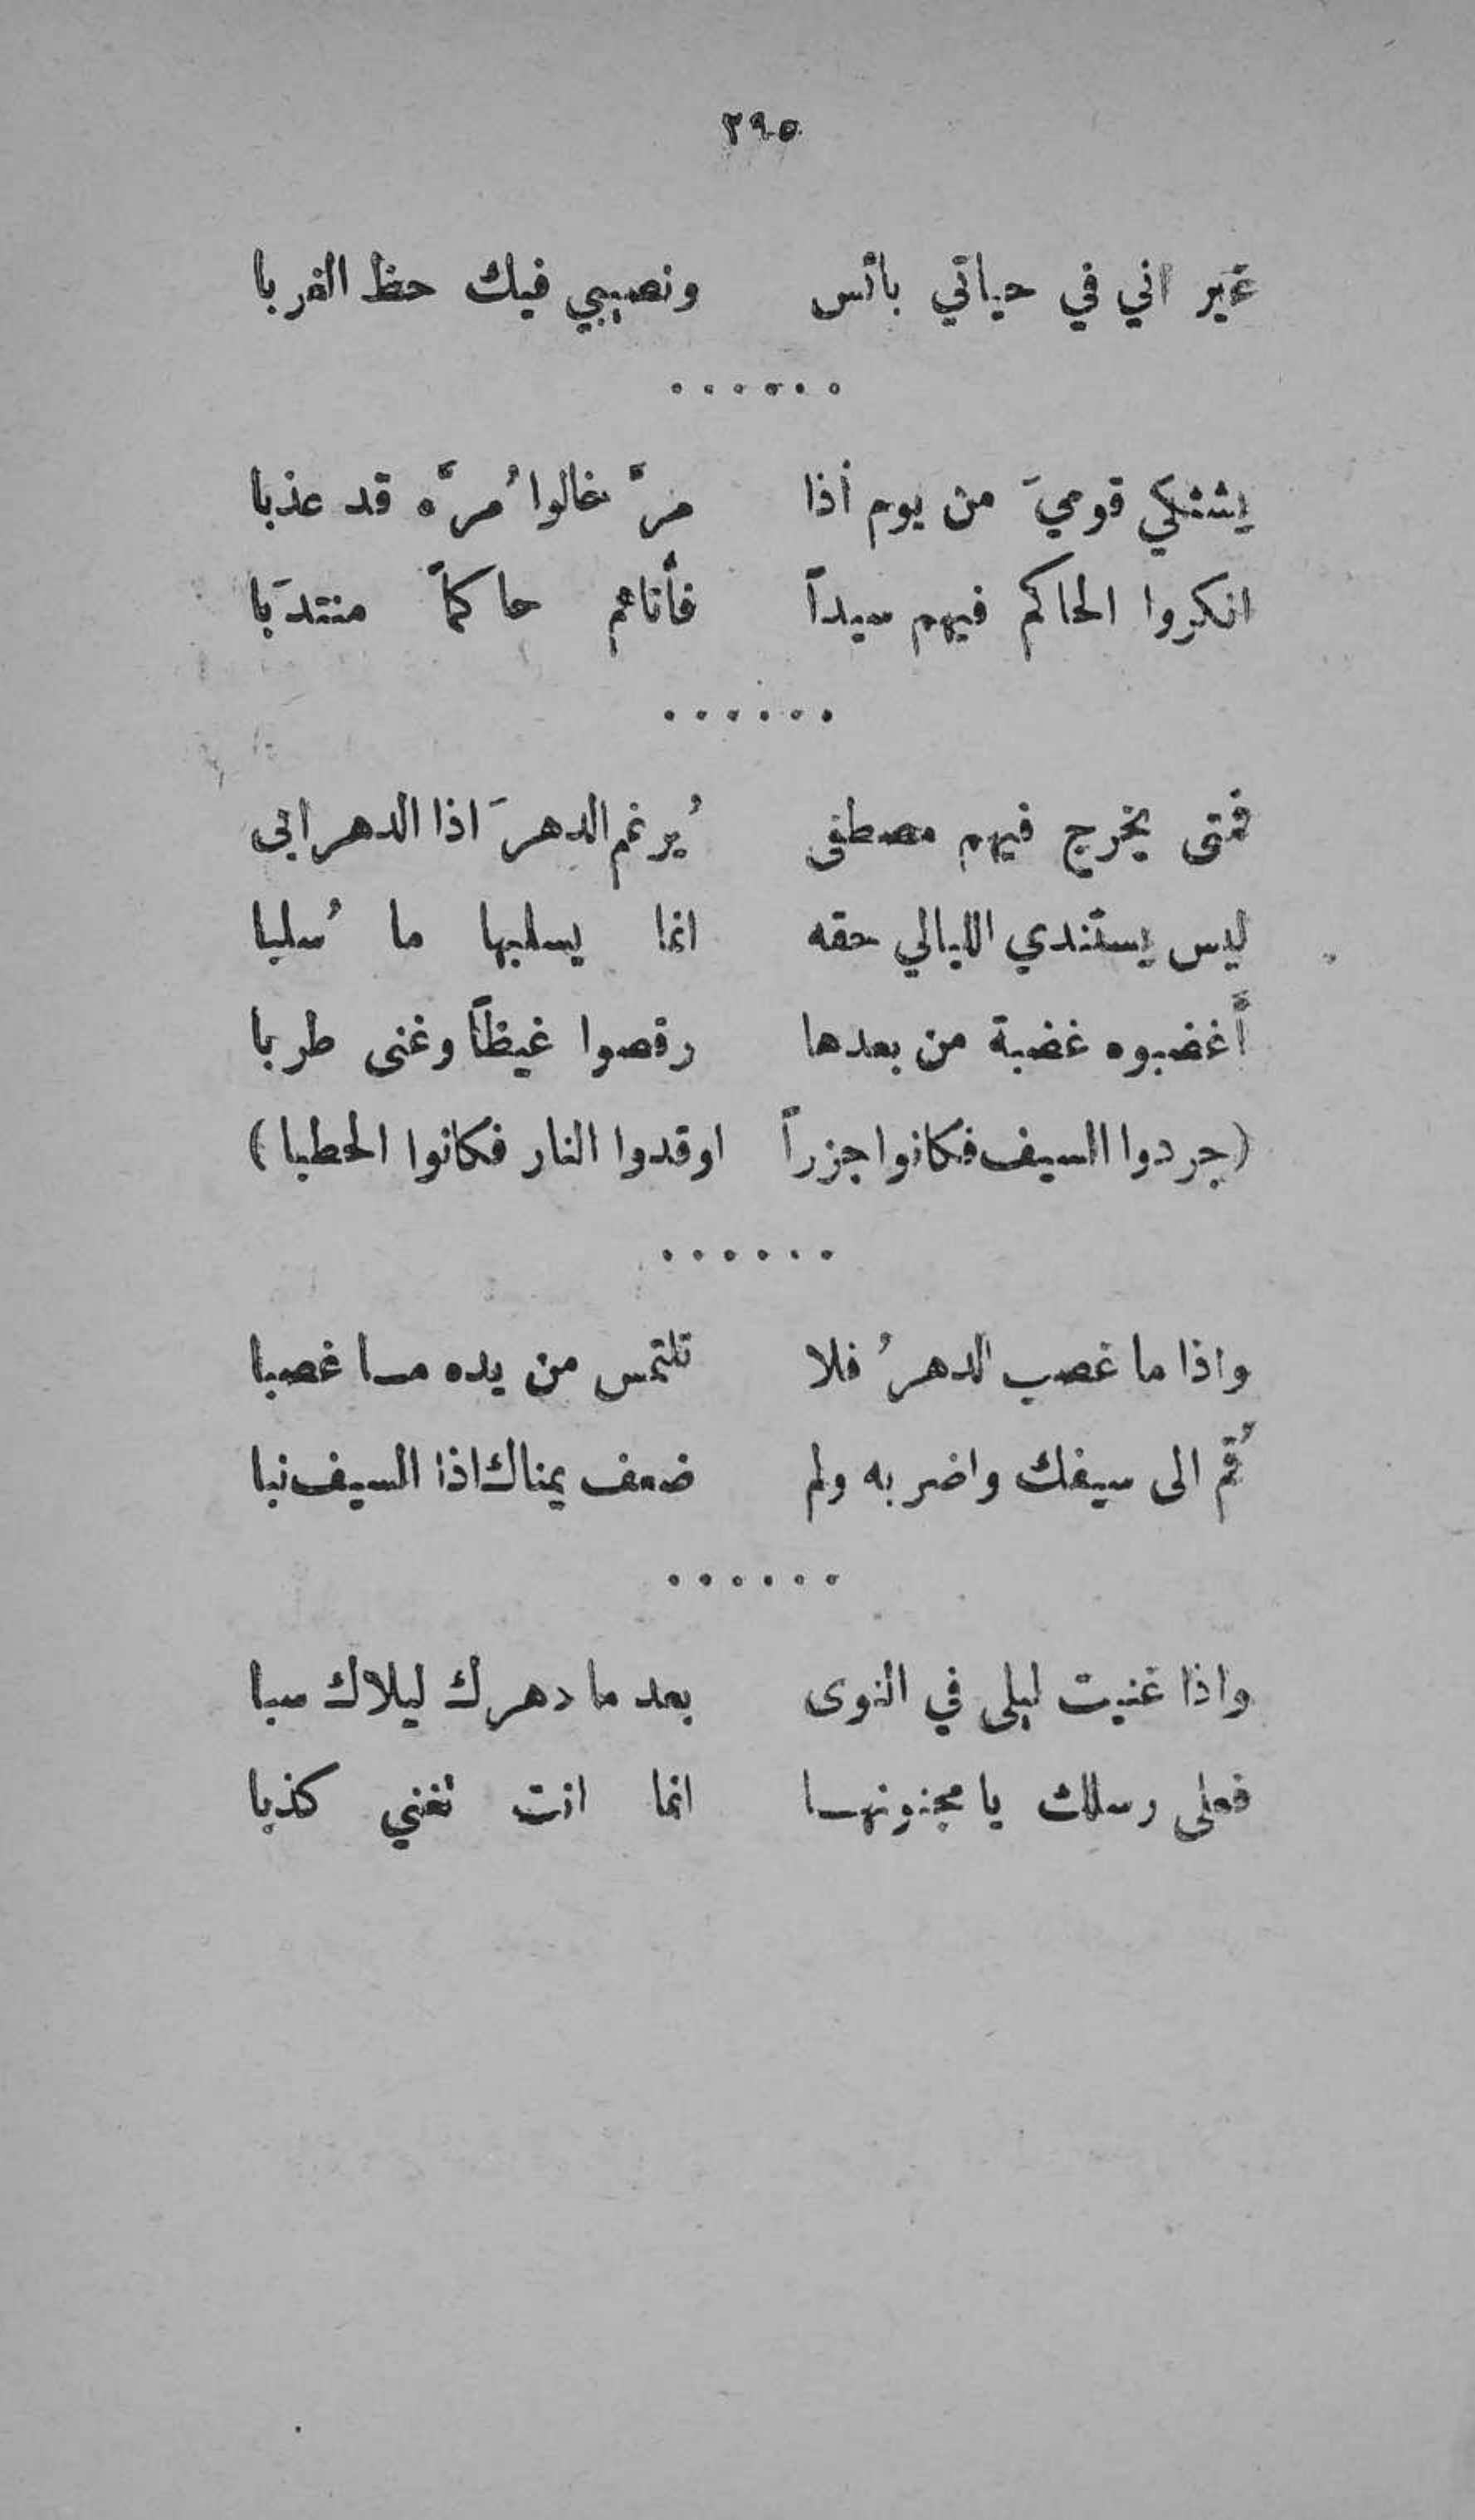 ٢٩٥
غير اني في حياتي بائس ونصيبي فيك حظ الغربا
......
يشتكي قوميَ من يوم أذا مرَّ خالوا مُرَّه قد عذبا
انكروا الحاكم فيهم سيداً فأتاهم حاكماً منتدَبا
......
فمتى يخرج فيهم مصطفى يُرغم الدهرَ اذا الدهر ابى
ليس يستندي الليالي حقه انما يسلبها ما سُلبا
أغضبوه غضبة من بعدها رقصوا غيظاً وغنى طربا
(جردوا السيف فكانوا جزراً اوقدوا النار فكانوا الحطبا)
......
واذا ما غصب الدهرُ فلا تلتمس من يده ما غصبا
قُم الى سيفك واضربه ولم ضعف يمناك اذا السيف نبا
......
واذا غنيت ليلى في النوى بعد ما دهرك ليلاك سبا
فعلى رسلك يا مجنونها انما انت تغني كذبا